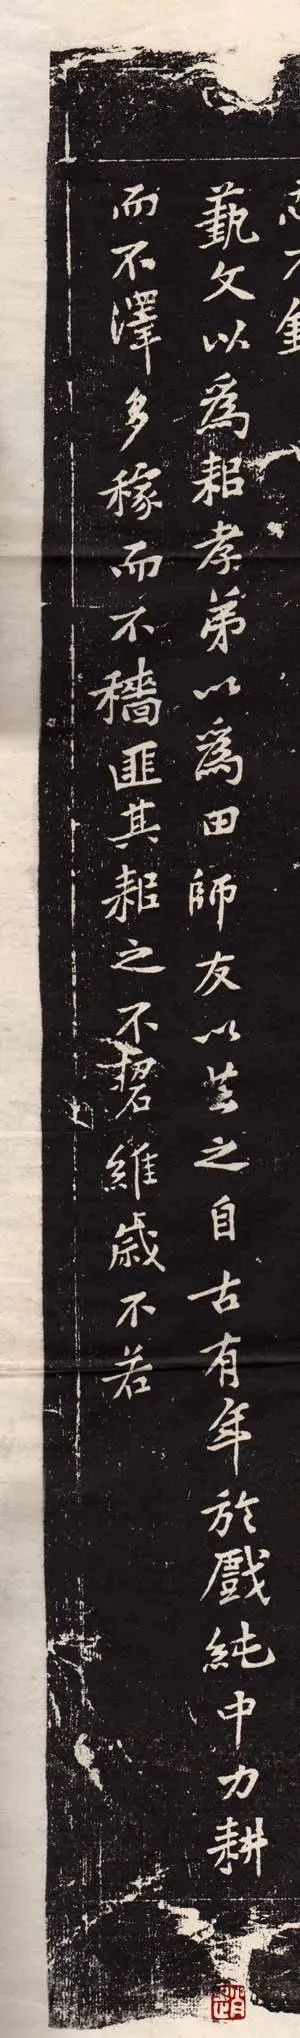 藝文以爲耜孝弟以爲田師友以芸之自古有年於戲純中力耕
而不澤多稼而不穡匪其耜之不維歲不若